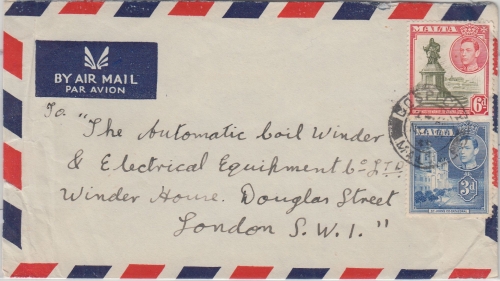 BY AIR MAIL
PAR AVION
MALTA
6D
MALTA
3d
To "The Automatic Coil Winder
& Electrical Equihment Co LTD
Winder House. Douglas Street
London S.W.1."